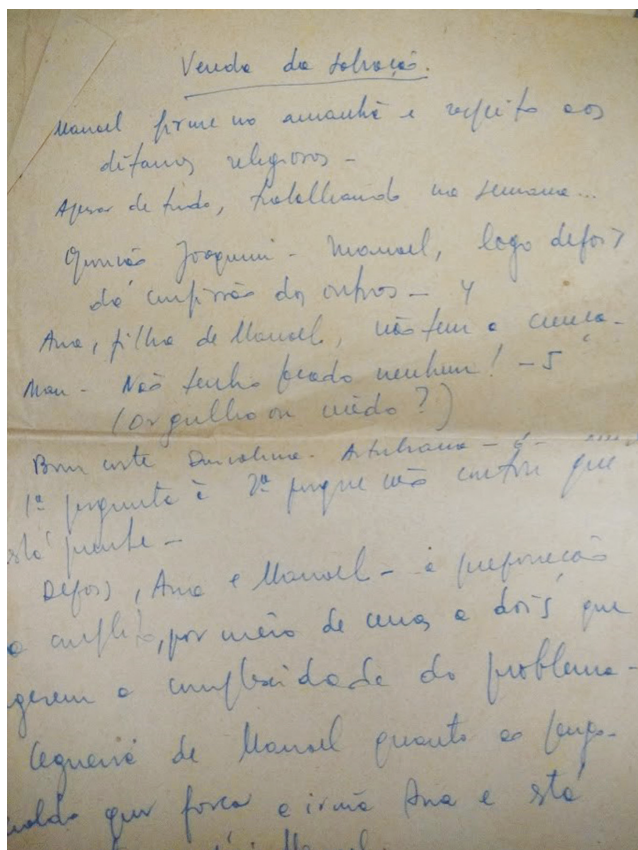 Venda da salvação.
Manoel firme no amanhã e respeito aos
ditames religiosos -
Apesar de tudo, trabalhando na semana...
Joaquim - Manoel, logo depois
da confissão dos outros - 4
Ana, filha de Manoel, não tem a
Man - Não tenho pecado nenhum! - 5
(orgulho ou medo?)
Bom corte - 6 -
1ª pergunta à 2ª porque não contou que
está -
Depois, Ana e Manoel - a preparação
o conflito, por meio de cenas a dois que
gerem a complexidade do problema -
Cegueira de Manoel quanto ao
quer forçar a irmã Ana e está
Manoel